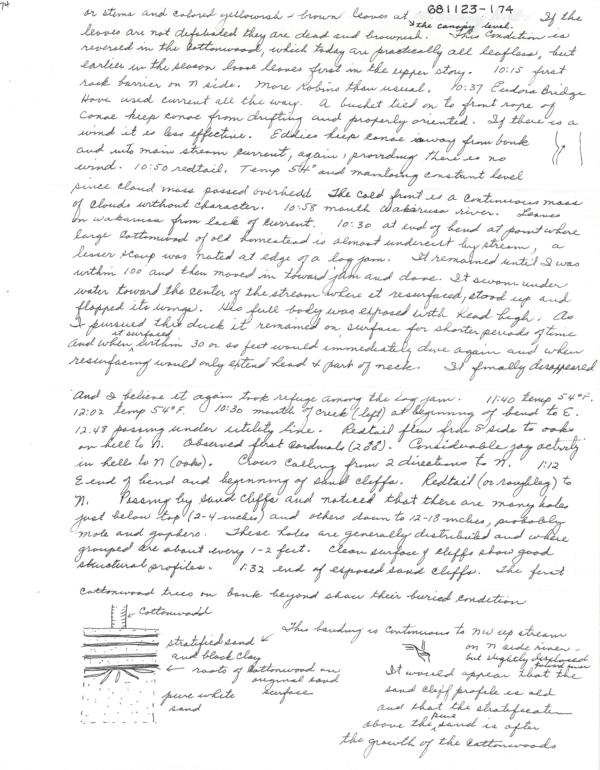 74
681123-174
or stems and colored yellowish-brown leaves at the canopy level. If the
leaves are not defoliated they are dead and brownish. This condition is
reversed in the Cottonwood, which today are practically all leafless, but
earlier in the season loose leaves first in the upper story. 10:15 first
rock barrier on N side. More Robins than usual. 10:37 Eudora Bridge
Have used current all the way. A bucket tied on to front rope of
Canoe keep canoe from drifting and properly oriented. If there is a
wind it is less effective. Eddies keep canoe away from bank
and into main stream current, again, providing there is no
wind. 10:50 redtail. Temp 54° and maintaining constant level
since cloud mass passed overhead. The cold front is a continuous mass
of clouds without character. 10:58 mouth Wakarusa river. Leaves
on Wakarusa from lack of current. 10:30 at end of bend at point where
large Cottonwood of old homestead is almost undercut by stream, a
lesser scaup was noted at edge of a log jam. It remained until I was
within 100 and then moved in toward jam and dove. It swam under
water toward the center of the stream where it resurfaced, stood up and
flapped its wings. His full body was exposed with head high. As
I pursued this duck it remained on surface for shorter periods of time
and when it surfaced within 30 or so feet would immediately dive again and when
resurfacing would only extend head & part of neck. It finally disappeared
And I believe it again took refuge among the log jam. 11:40 temp 54°F.
12:02 temp 54°F. 10:30 mouth of creek (left) at beginning of bend to E.
12:48 passing under utility line. Redtail flew from S side to oaks
on hill to N. Observed first Cardinals (2♂♂). Considerable jay activity
in hills to N (oaks). Crows calling from 2 directions to N. 1:12
E end of bend and beginning of sand cliffs. Redtail (or roughleg) to
N. Passing by sand cliffs and noticed that there are many holes
just below top (2-4 inches) and others down to 12-18 inches, probably
mole and gophers. These holes are generally distributed and where
grouped are about every 1-2 feet. Clean surface of cliffs show good
structural profiles. 1:32 end of exposed sand cliffs. The first
cottonwood trees on bank beyond show their buried condition
Cottonwood
stratified sand
and black clay
roots of Cottonwood on
original sand
surface
pure white
sand
This banding is continuous to NW up stream
on N side river -
but slightly displaced
It would appear that the
sand cliff profile is old
and that the stratification
above the pure sand is after
the growth of the Cottonwoods